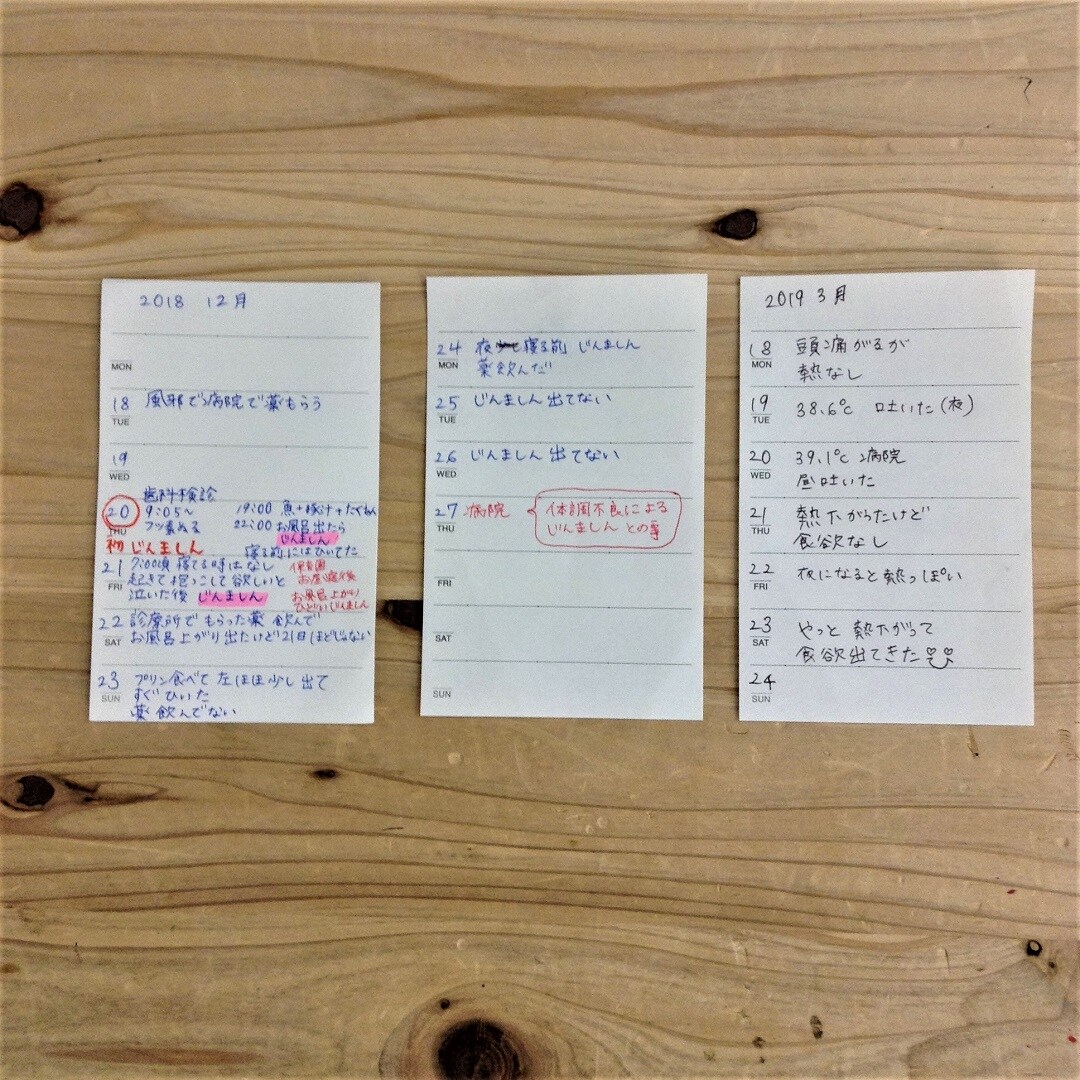 2018 12月
MON
18 TUE 風邪で病院で薬もらう
19 WED
20 THU
歯科検診
9:05～
フッ素ぬる
初じんましん
19:00 魚+豚汁+たくわん
22:00 お風呂出たら
じんましん
寝る前にはひいてた
21 FRI
7:00頃 寝てる時はなし
起きて抱っこして欲しいと
泣いた後 じんましん
保育園
お昼寝後
お風呂上がり
ひどいじんましん
22 SAT
診療所でもらった薬 飲んで
お風呂上がり出たけど21日ほどじゃない
23 SUN
プリン食べて左ほほ少し出て
すぐひいた
薬飲んでない
24 MON
夜 寝る前 じんましん
薬飲んだ
25 TUE じんましん出てない
26 WED じんましん出てない
27 THU 病院
体調不良による
じんましんとの事
FRI
SAT
SUN
2019 3月
18 MON
頭痛がるが
熱なし
19 TUE 38.6℃ 吐いた(夜)
20 WED
39.1℃ 病院
昼吐いた
21 THU
熱下がったけど
食欲なし
22 FRI 夜になると熱っぽい
23 SAT
やっと熱下がって
食欲出てきた
24 SUN